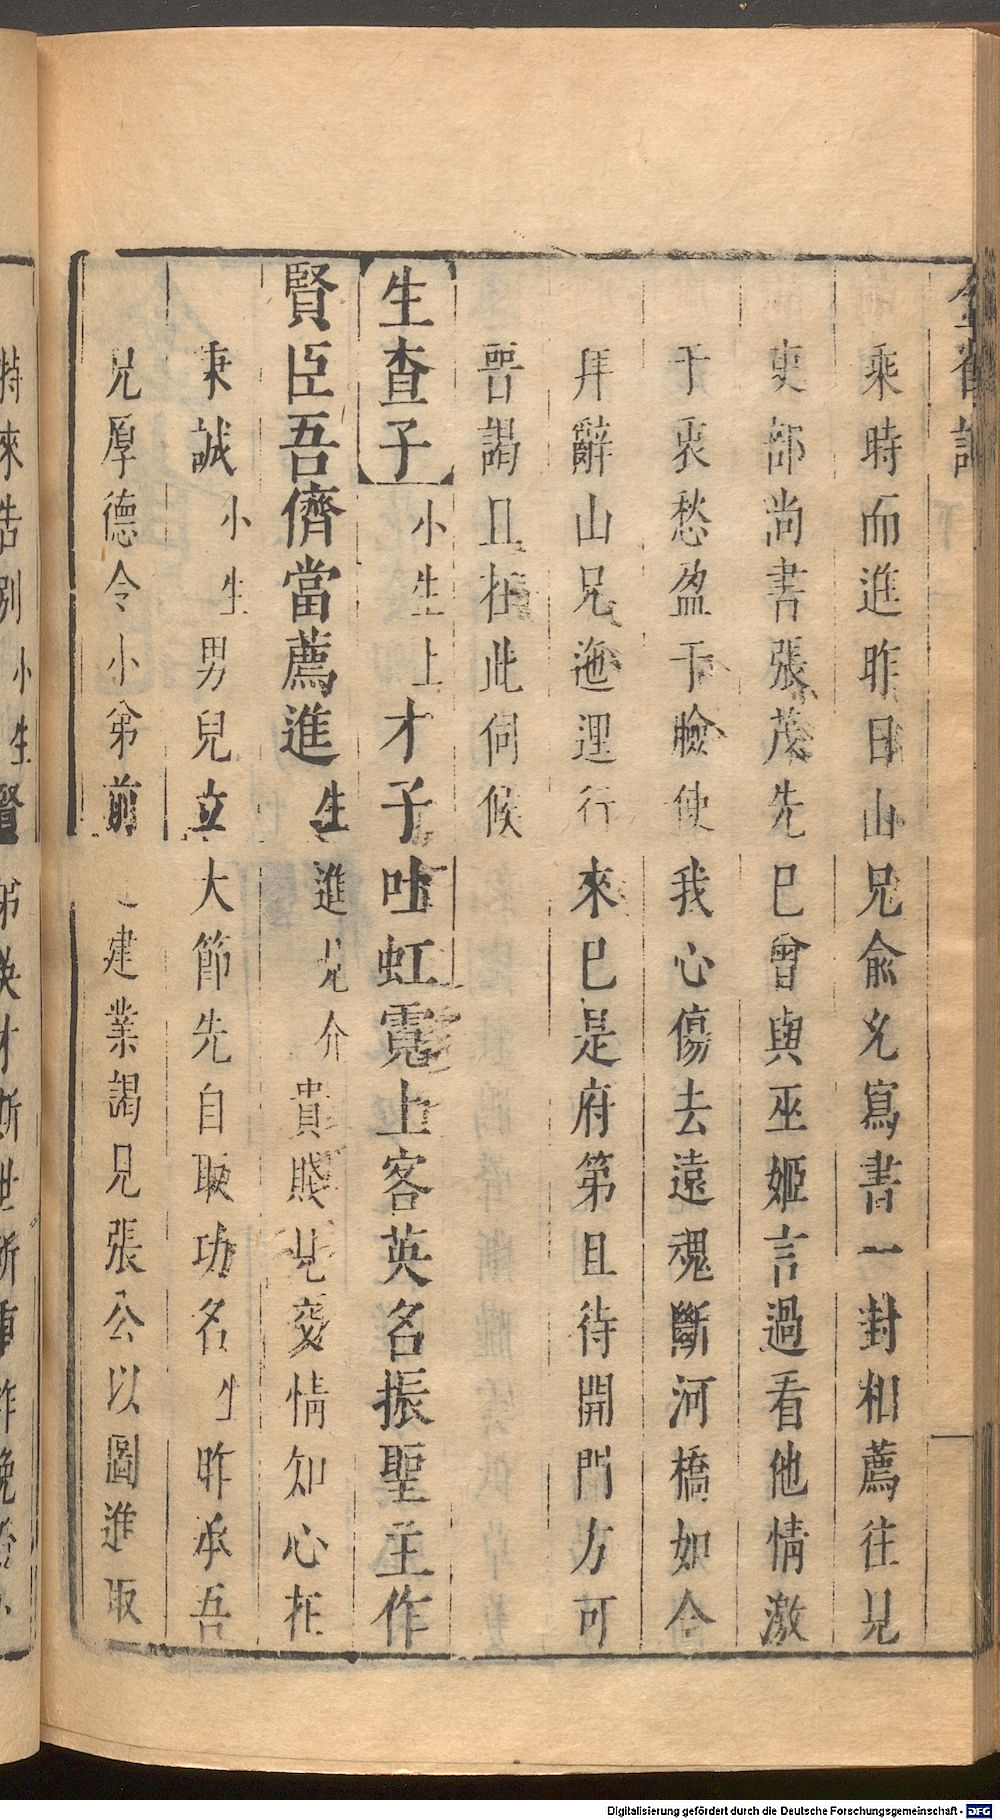 乘時而進昨日山兄俞允寫書一封相薦往見
吏部尚書張茂先已曾與巫姬言過看他情激
于衷愁盈于臉使我心傷去遠魂斷河橋如今
拜辭山兄迤逕行來已是府第且待開門方可
晋謁且在此伺候
生查子 小生上 才子吐虹霓上客英名振聖主作
賢臣吾儕當薦進 生進見介 貴賤見交情知心在
秉誠 小生 男兒立大節先自取功名 生 昨承吾
兄厚德令小弟前 建業謁見張公以圖進取
Digitalisierung gefördert durch die Deutsche Forschungsgemeinschaft - DFG